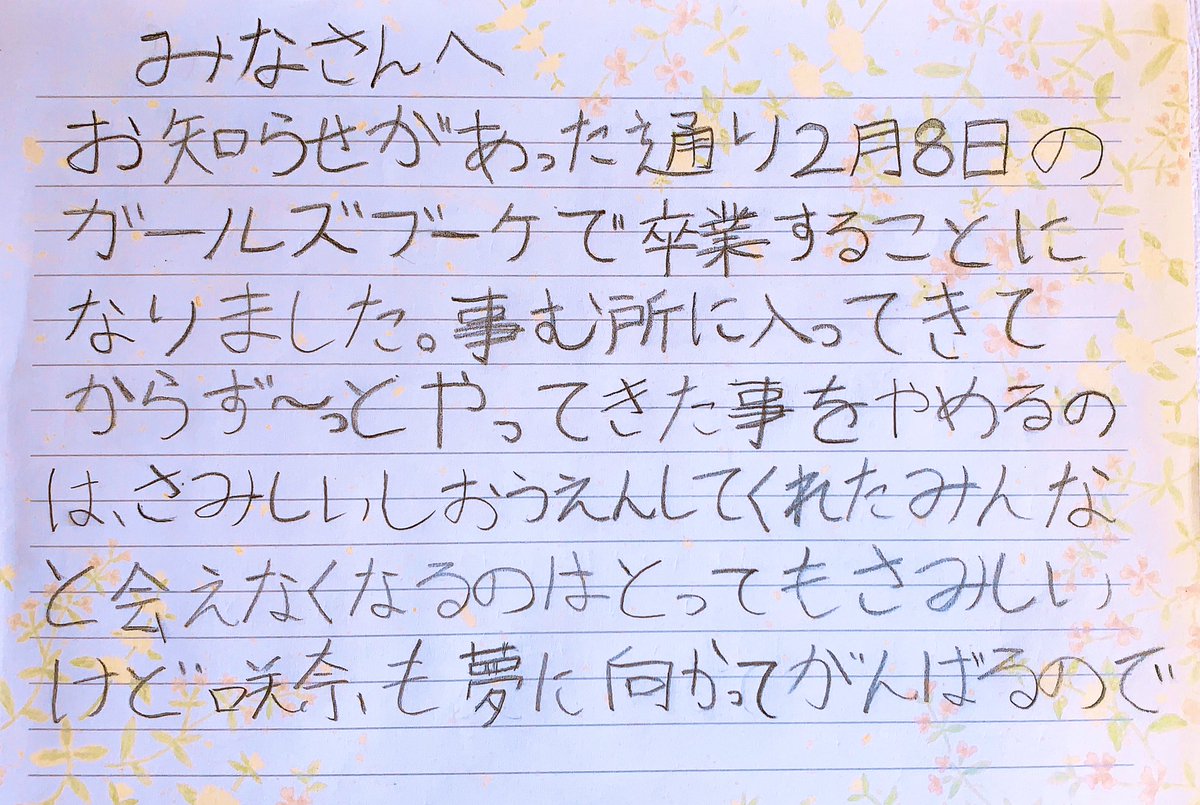 みなさんへ
お知らせがあった通り2月8日の
ガールズブーケで卒業することに
なりました。事む所に入ってきて
からず〜っとやってきた事をやめるの
は、さみしいしおうえんしてくれたみんな
と会えなくなるのはとってもさみしい
けど咲奈も夢に向かってがんばるので